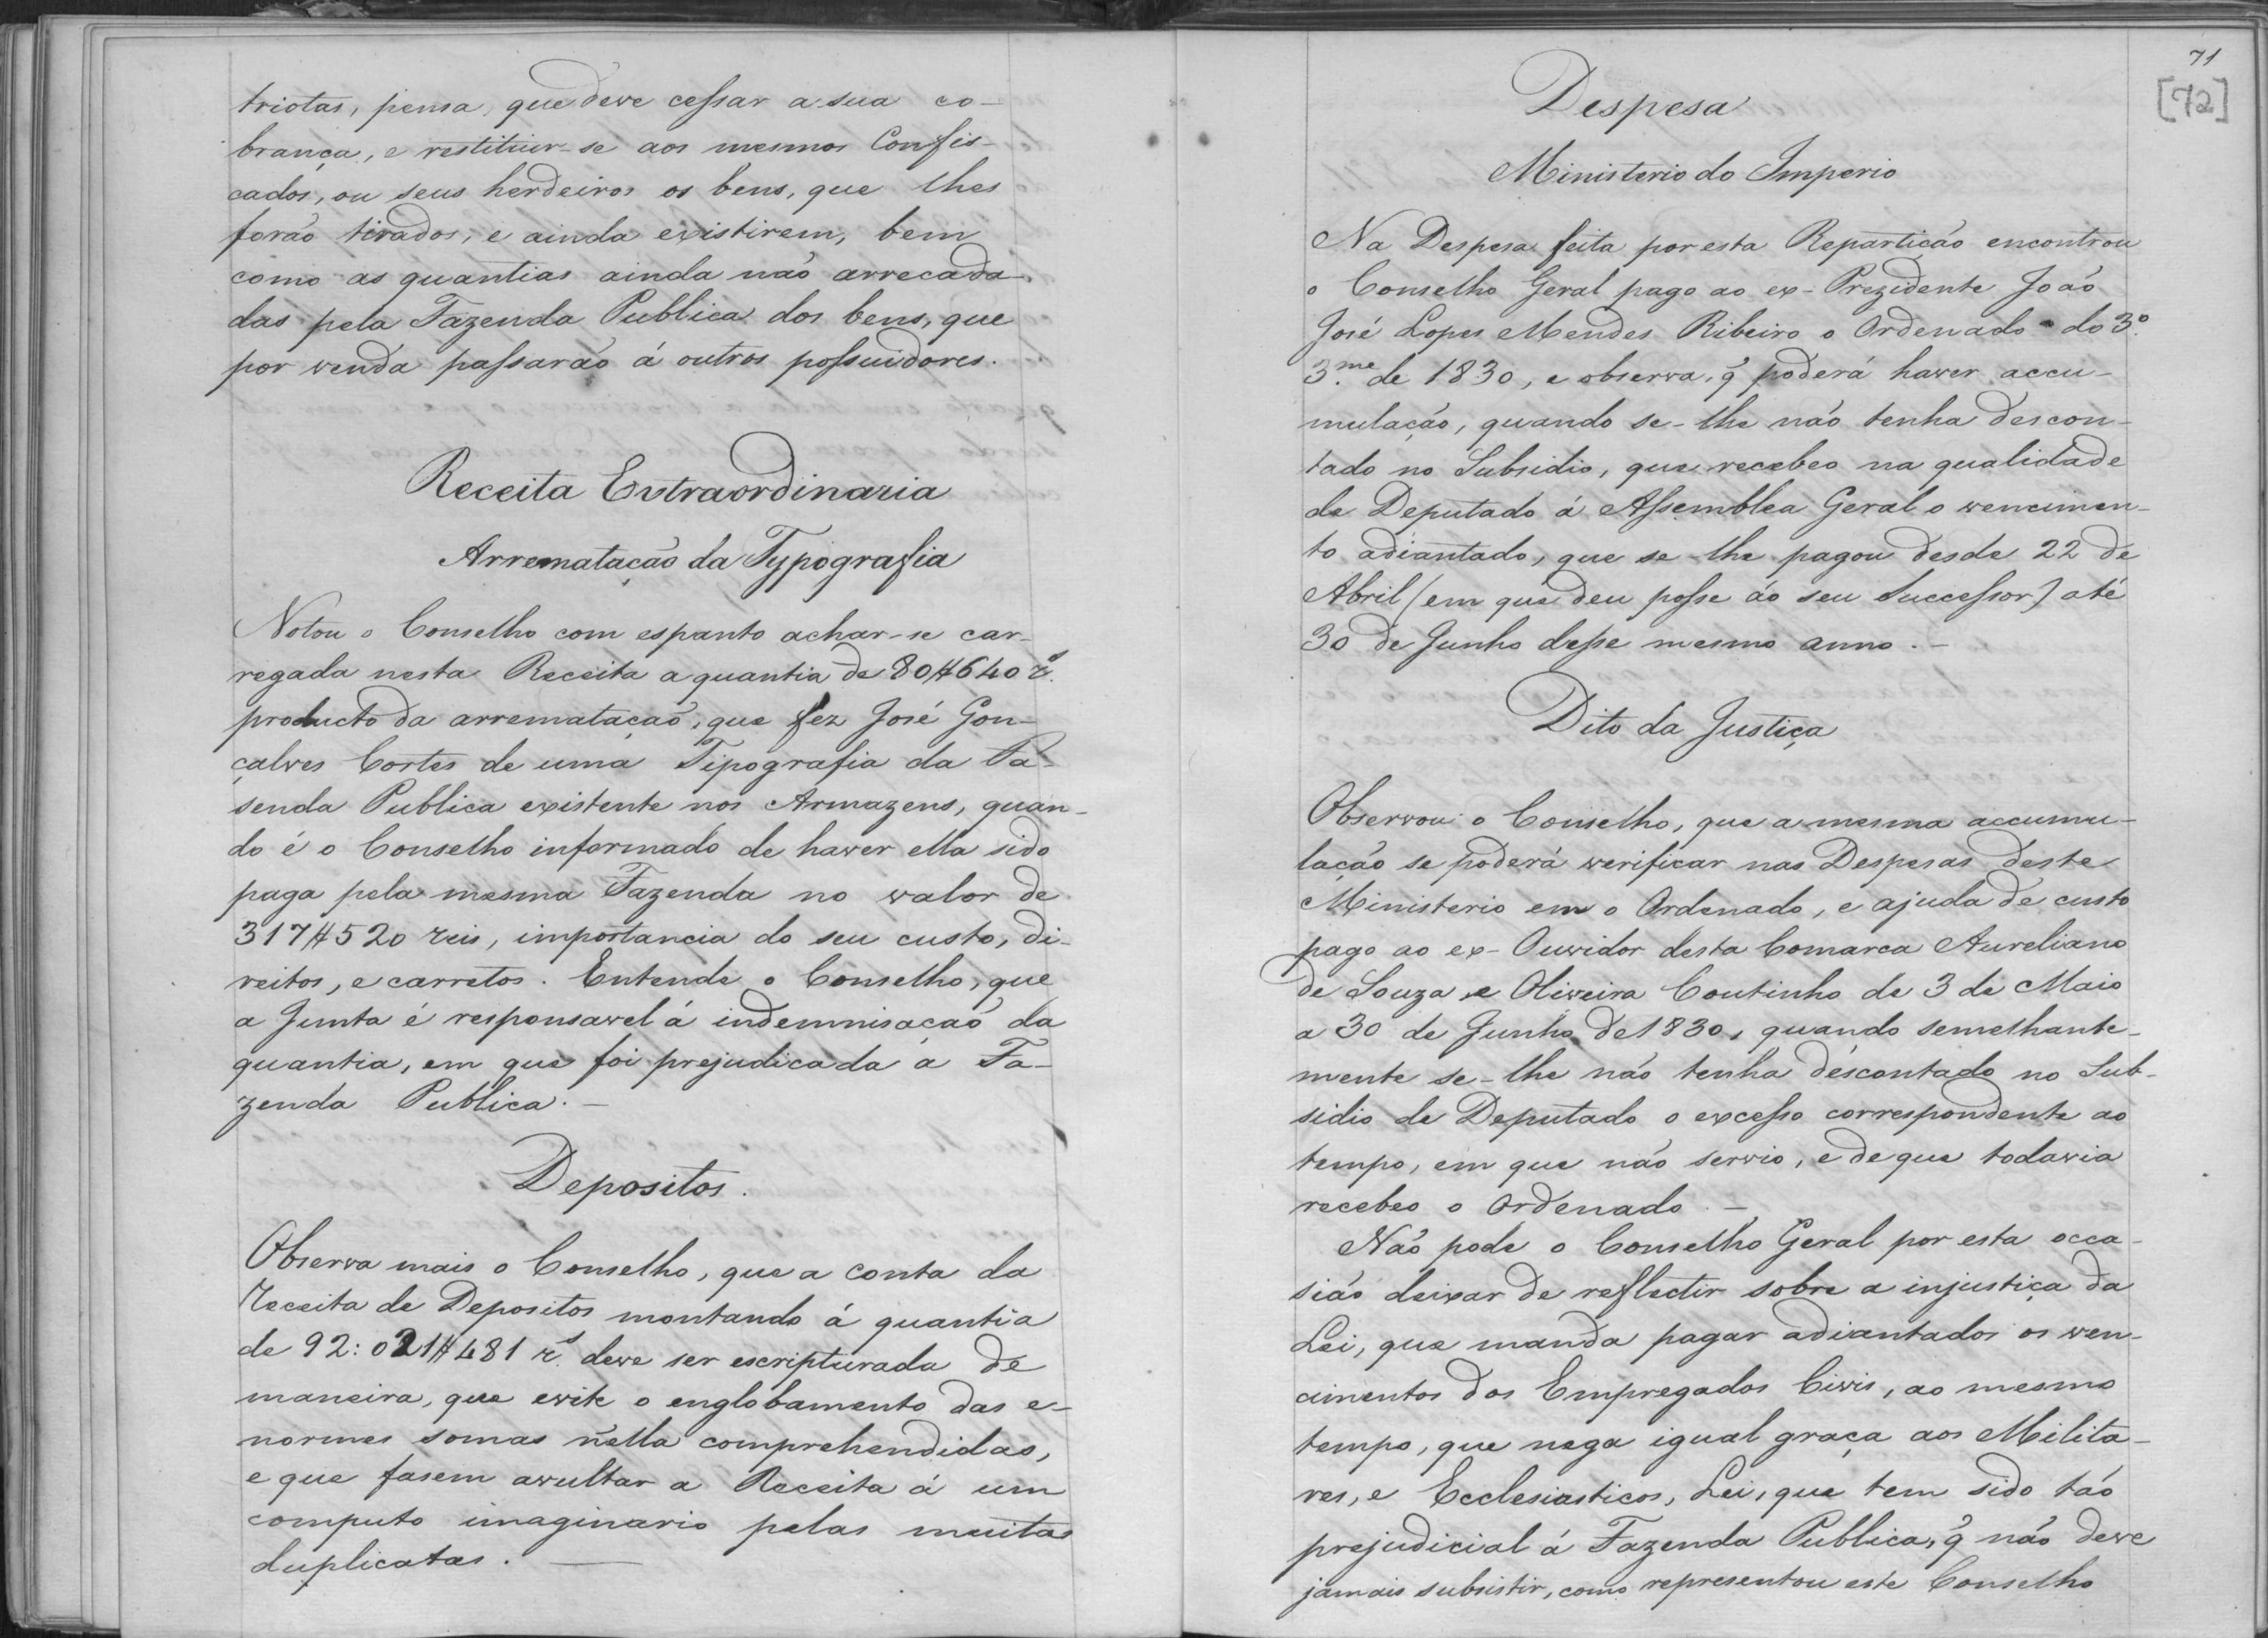 triotas, pensa, que deve cessar a sua co-
brança, e restituir-se aos mesmos Confis-
cados, ou seus herdeiros os bens, que lhes
forão tirados, e ainda existirem, bem
como as quantias ainda não arrecada-
das pela Fazenda Publica dos bens, que
por venda passarão á outros possuidores.
Receita Extraordinaria
Arrematação da Typografia
Notou o Conselho com espanto achar-se car-
regada nesta Receita a quantia de 80$640 rs.
producto da arrematação, que fez José Gon-
çalves Cortes de uma Tipografia da Fa-
senda Publica existente nos Armazens, quan-
do é o Conselho informado de haver ella sido
paga pela mesma Fazenda no valor de
317$520 reis, importancia do seu custo, di-
reitos, e carretos. Entende o Conselho, que
a Junta é responsavel á indemnisação da
quantia, em que foi prejudicada a Fa-
zenda Publica. —
Depositos.
Observa mais o Conselho, que a conta da
Receita de Depositos montando á quantia
de 92:021$481 rs. deve ser escripturada de
maneira, que evite o englobamento das e-
normes somas n'ella comprehendidas,
e que fasem avultar a Receita á um
computo imaginario pelas muitas
duplicatas. —
71
[72]
Despesa
Ministerio do Imperio
Na Despesa feita por esta Repartição encontrou
o Conselho Geral pago ao ex-Prezidente João
José Lopes Mendes Ribeiro o Ordenado do 3º.
3.me de 1830, e observa, q̃ poderá haver accu-
mulação, quando se-lhe não tenha descon-
tado no Subsidio, que recebeo na qualidade
de Deputado á Assemblea Geral o vencimen-
to adiantado, que se-lhe pagou desde 22 de
Abril (em que deu posse ao seu Successor) até
30 de Junho desse mesmo anno. —
Dito da Justiça
Observou o Conselho, que a mesma accumu-
lação se poderá verificar nas Despesas deste
Ministerio em o Ordenado, e ajuda de custo
pago ao ex-Ouvidor desta Comarca Aureliano
de Souza e Oliveira Coutinho de 3 de Maio
a 30 de Junho de 1830, quando semelhante-
mente se-lhe não tenha descontado no Sub-
sidio de Deputado o excesso correspondente ao
tempo, em que não servio, e de que todavia
recebeo o Ordenado. —
Não pode o Conselho Geral por esta occa-
sião deixar de reflectir sobre a injustiça da
Lei, que manda pagar adiantados os ven-
cimentos dos Empregados Civis, ao mesmo
tempo, que nega igual graça aos Milita-
res, e Ecclesiasticos, Lei, que tem sido tão
prejudicial á Fazenda Publica, q̃ não deve
jamais subsistir, como representou este Conselho